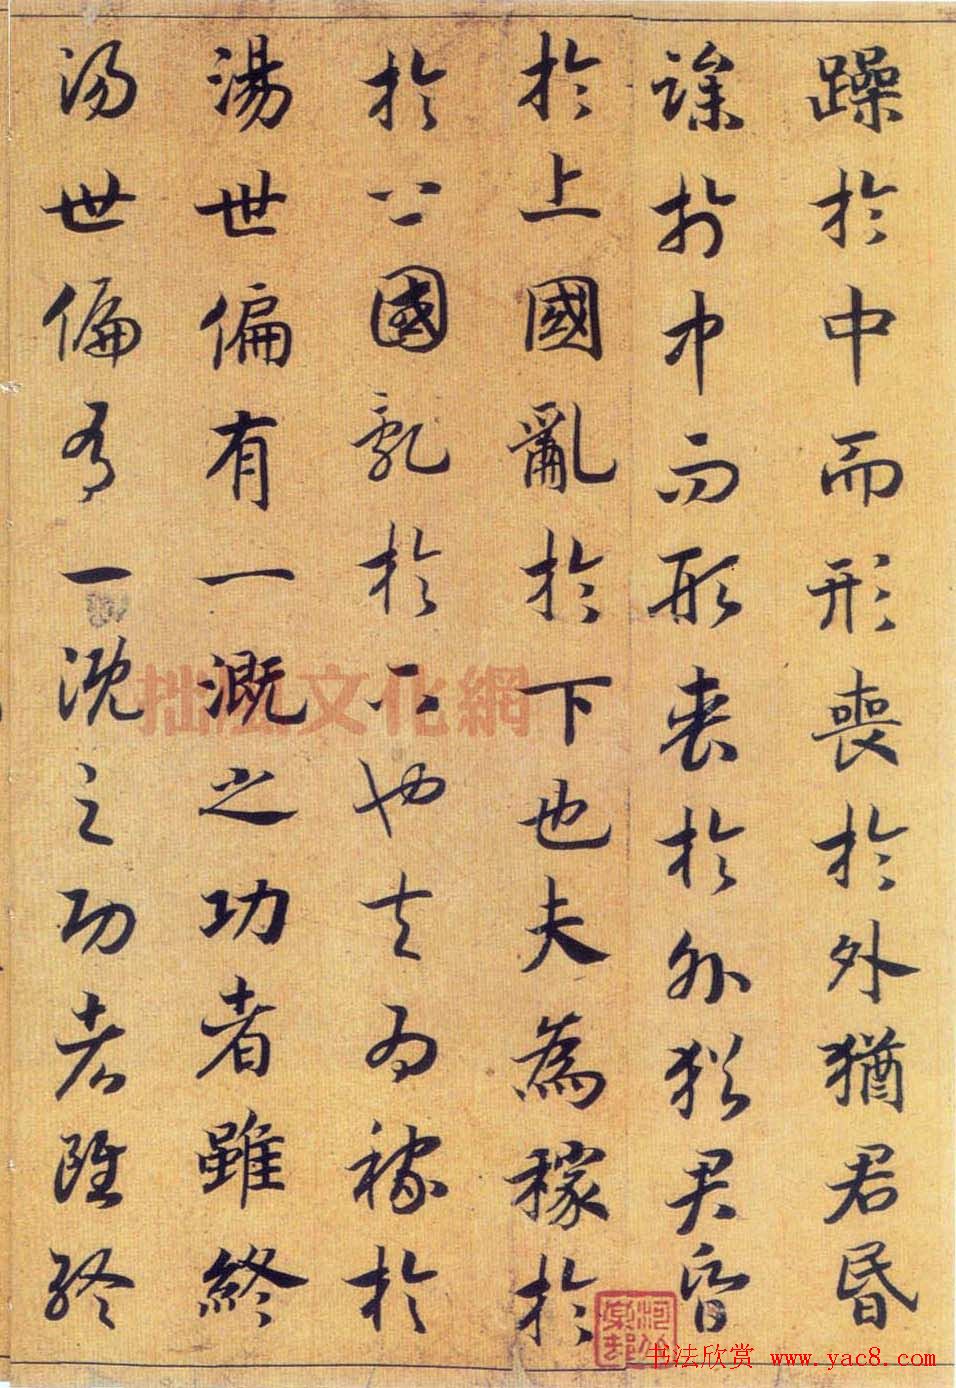 躁於中而形喪於外猶君昏
躁於中而形喪於外猶君昏
於上國亂於下也夫為稼於
於上國亂於下也夫為稼於
湯世偏有一溉之功者雖終
湯世偏有一溉之功者雖終
拙風文化網
书法欣赏 www.yac8.com